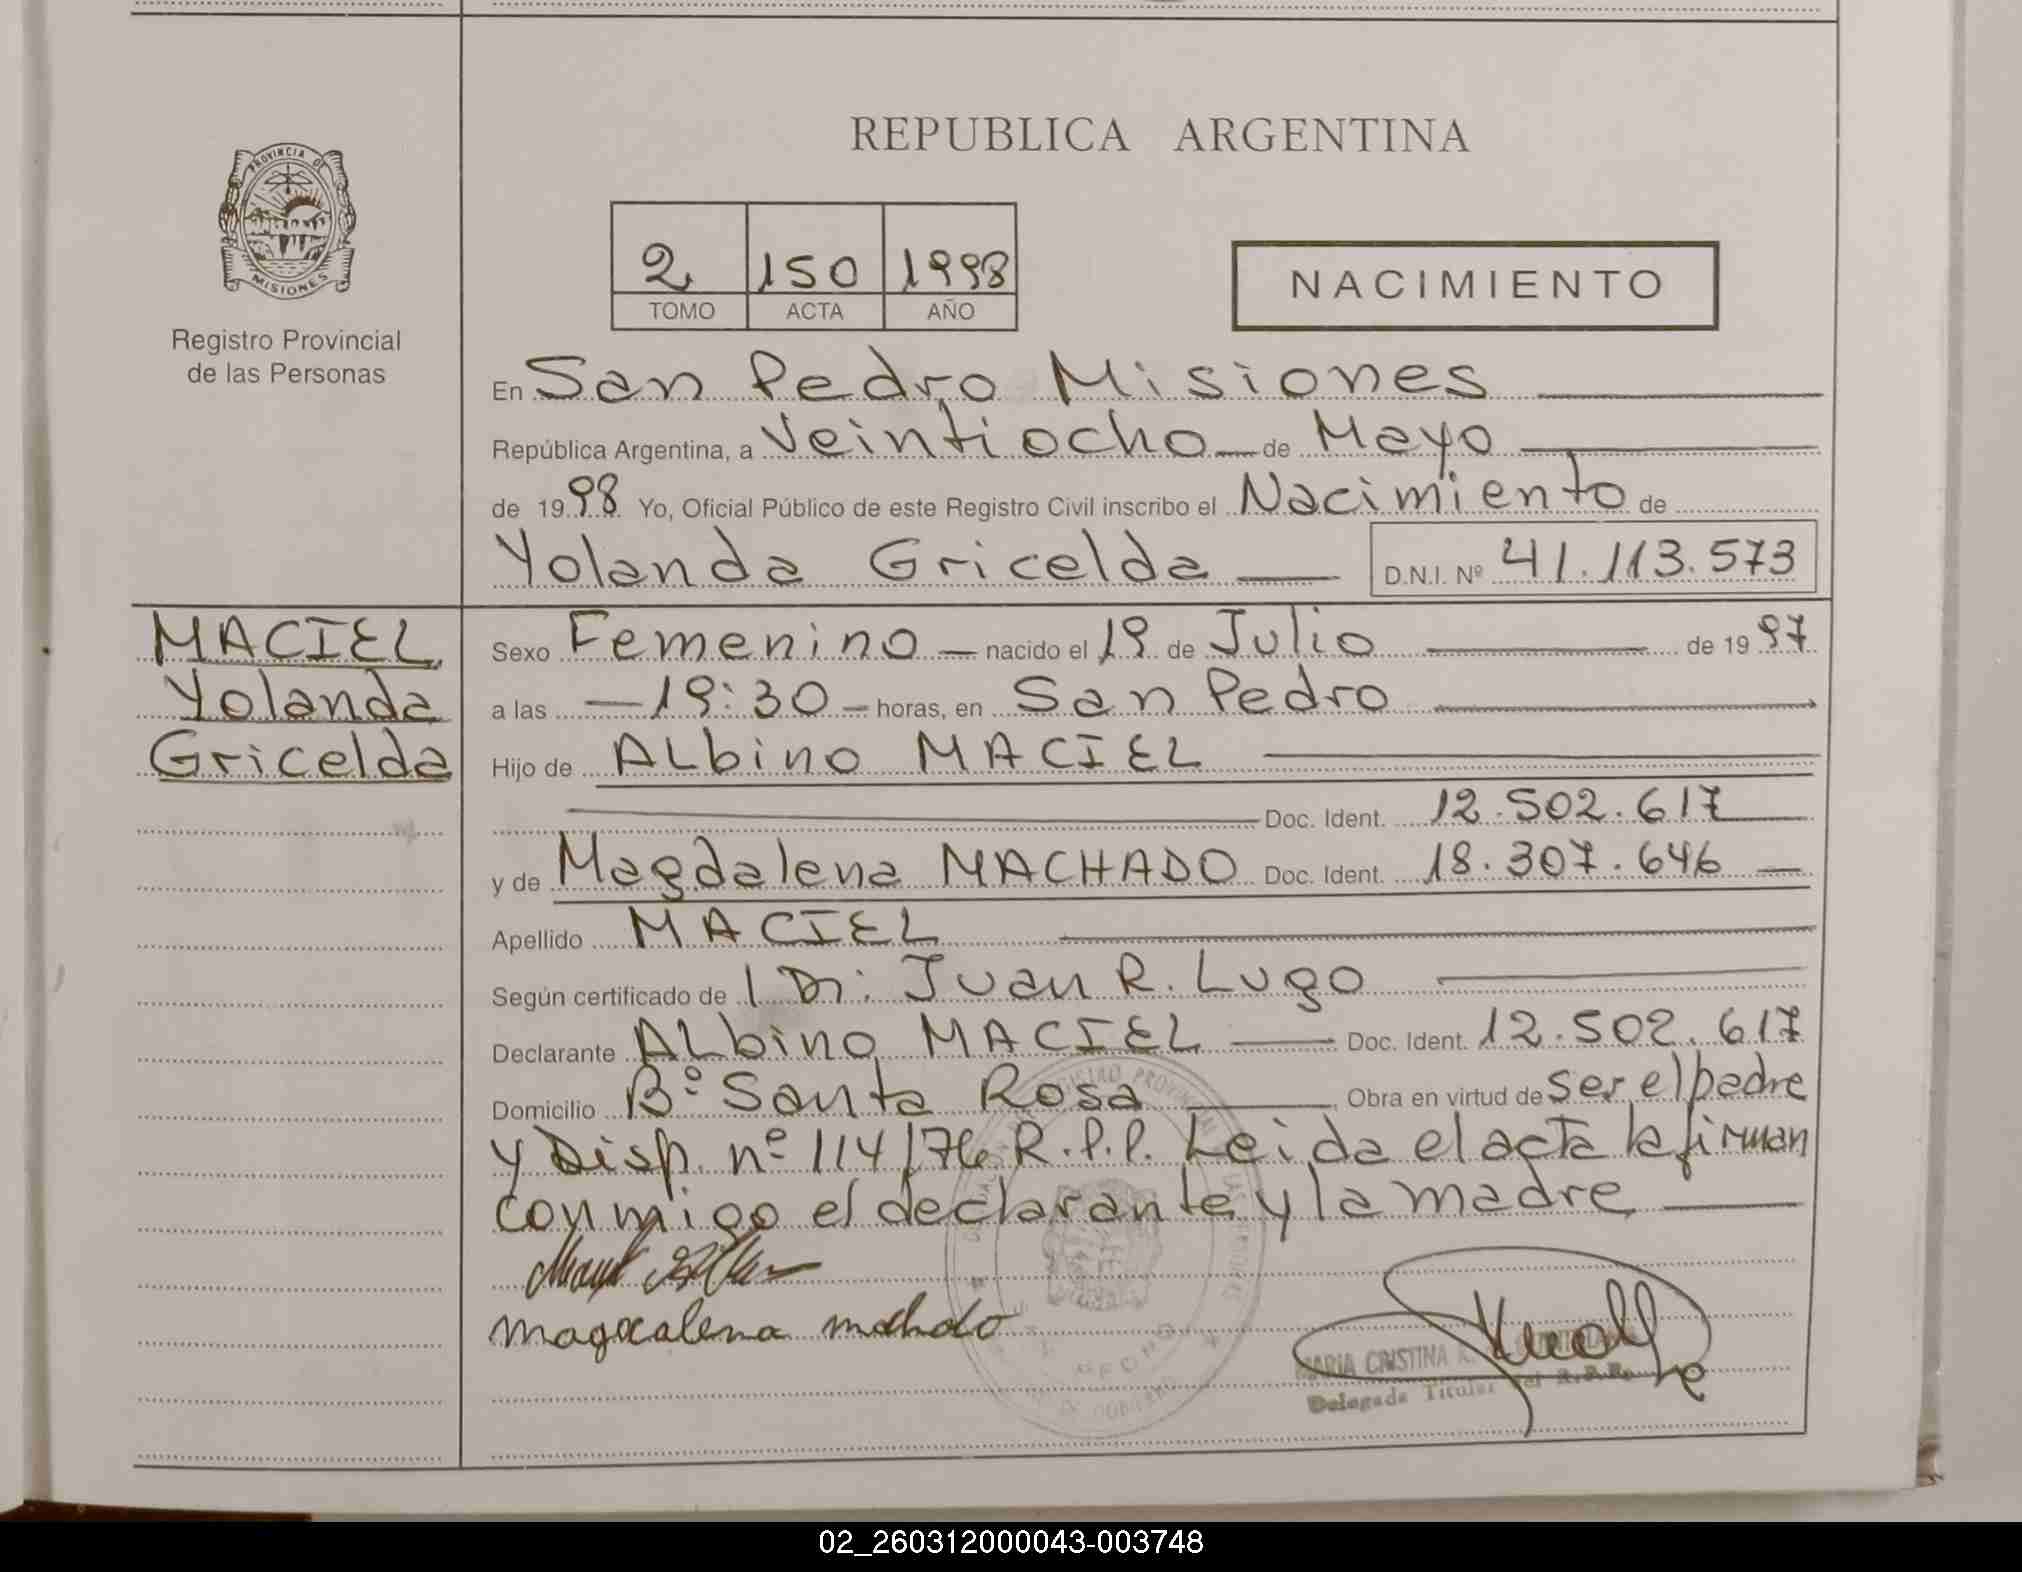 REPUBLICA ARGENTINA
PROVINCIA DE
MISIONES
Registro Provincial
de las Personas
2 150 1998
TOMO ACTA AÑO
NACIMIENTO
En San Pedro Misiones
República Argentina, a Veintiocho de Mayo
de 1998 Yo, Oficial Público de este Registro Civil inscribo el Nacimiento de
Yolanda Gricelda D.N.I. Nº 41.113.573
MACIEL
Yolanda
Gricelda
Sexo Femenino nacido el 19 de Julio de 1997
a las 19:30 horas, en San Pedro
Hijo de ALbino MACIEL
Doc. Ident. 12.502.617
y de Magdalena MACHADO Doc. Ident. 18.307.646
Apellido MACIEL
Según certificado de Dr: Juan R. Lugo
Declarante ALbino MACIEL Doc. Ident. 12.502.617
Domicilio Bº Santa Rosa Obra en virtud de ser el padre
y Disp. nº 114/76 R.P.P. Leida el acta la firman
conmigo el declarante y la madre
magdalena machado
MARIA CRISTINA
Delegada Titular del R.P.P.
02_260312000043-003748